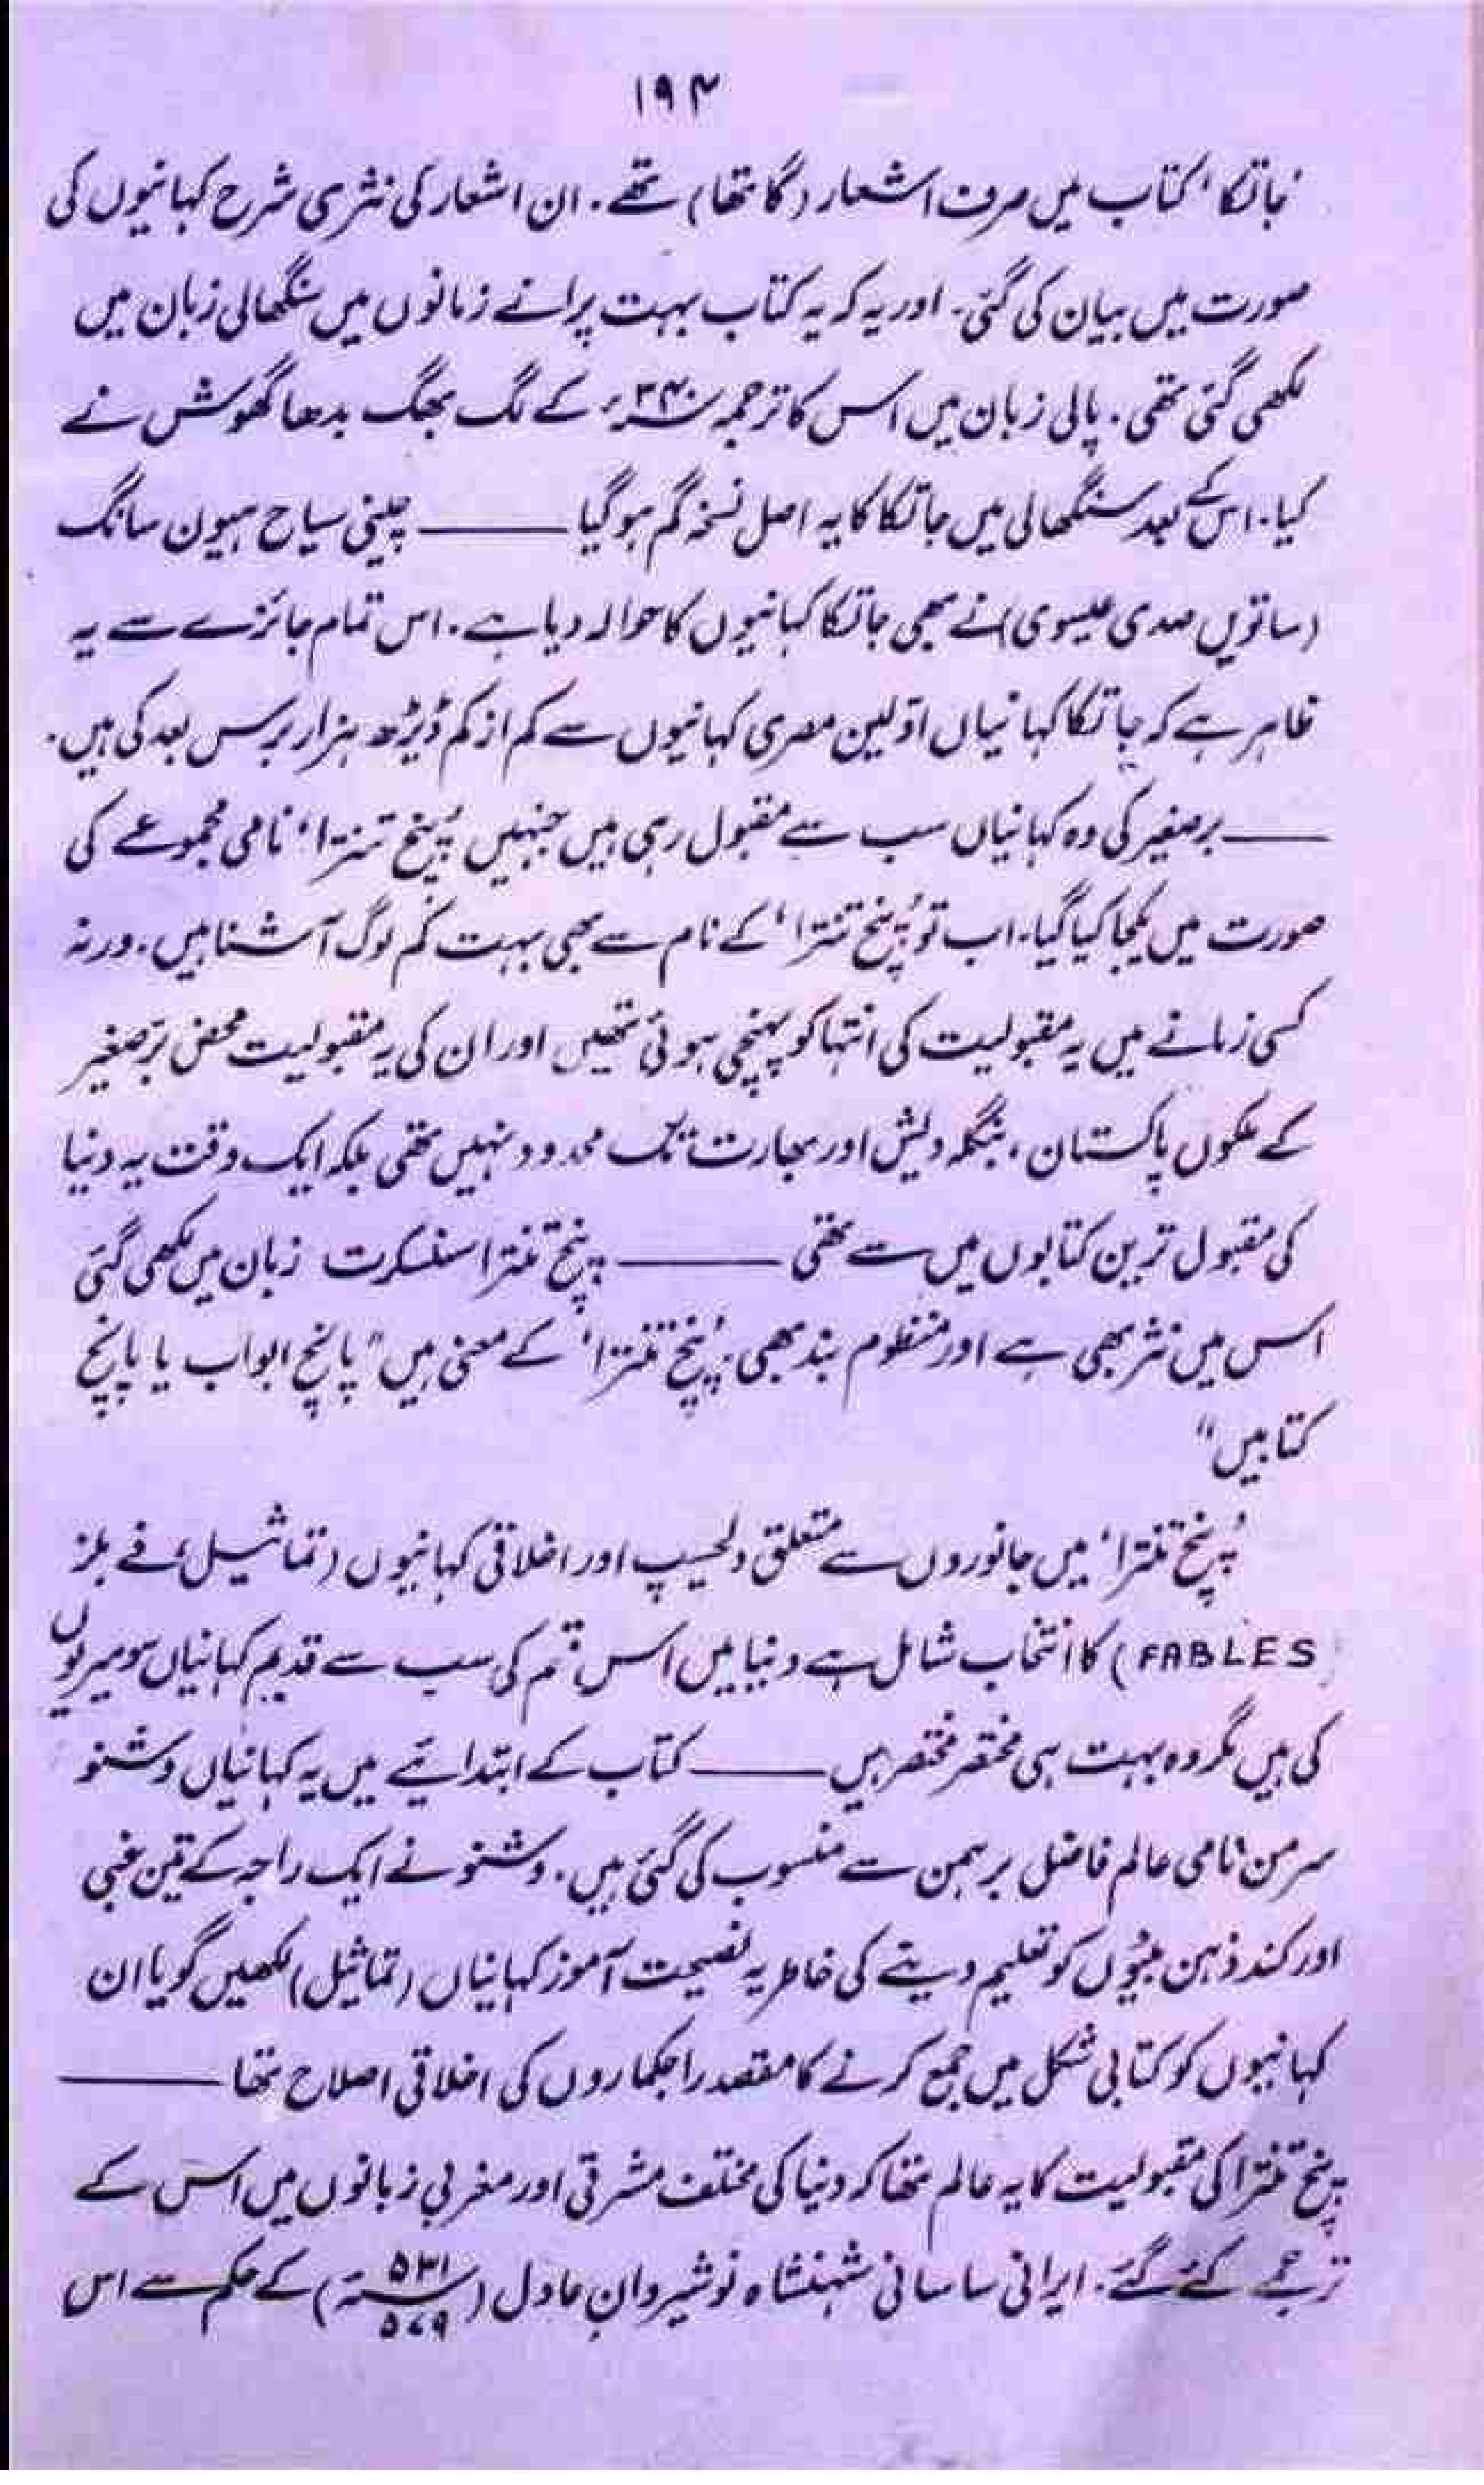 ۱۹۴
'جاتکا' کتاب میں صرف اشعار (گاتھا) تھے۔ ان اشعار کی نثری شرح کہانیوں کی
صورت میں بیان کی گئی۔ اور یہ کہ یہ کتاب بہت پرانے زمانوں میں سنگھالی زبان میں
لکھی گئی تھی۔ پالی زبان میں اس کا ترجمہ ۴۳۰ء کے لگ بھگ بدھا گھوش نے
کیا۔ اس کے بعد سنگھالی میں جاتکا کا یہ اصل نسخہ گم ہو گیا ——— چینی سیاح ہیون سانگ
(ساتویں صدی عیسوی) نے بھی جاتکا کہانیوں کا حوالہ دیا ہے۔ اس تمام جائزے سے یہ
ظاہر ہے کہ جاتکا کہانیاں اوّلین مصری کہانیوں سے کم از کم ڈیڑھ ہزار برس بعد کی ہیں۔
——— برصغیر کی وہ کہانیاں سب سے مقبول رہی ہیں جنہیں 'پنچ تنترا' نامی مجموعے کی
صورت میں یکجا کیا گیا۔ اب تو 'پنچ تنترا' کے نام سے بھی بہت کم لوگ آشنا ہیں۔ ورنہ
کسی زمانے میں یہ مقبولیت کی انتہا کو پہنچی ہوئی تھیں اور ان کی یہ مقبولیت محض برّصغیر
کے ملکوں پاکستان، بنگلہ دیش اور بھارت تک محدود نہیں تھی بلکہ ایک وقت یہ دنیا
کی مقبول ترین کتابوں میں سے تھی ——— پنچ تنترا سنسکرت زبان میں لکھی گئی
اس میں نثر بھی ہے اور منظوم بند بھی۔ 'پنچ تنترا' کے معنی ہیں "پانچ ابواب یا پانچ
کتابیں"
'پنچ تنترا' میں جانوروں سے متعلق دلچسپ اور اخلاقی کہانیوں (تماثیل، فے بلز
FABLES) کا انتخاب شامل ہے دنیا میں اس قسم کی سب سے قدیم کہانیاں سومیریوں
کی ہیں مگر وہ بہت ہی مختصر مختصر ہیں ——— کتاب کے ابتدائیے میں یہ کہانیاں وشنو
سرمن نامی عالم فاضل برہمن سے منسوب کی گئی ہیں۔ وشنو نے ایک راجہ کے تین غبی
اور کند ذہن بیٹوں کو تعلیم دینے کی خاطر یہ نصیحت آموز کہانیاں (تماثیل) لکھیں گویا ان
کہانیوں کو کتابی شکل میں جمع کرنے کا مقصد راجکماروں کی اخلاقی اصلاح تھا ———
پنچ تنترا کی مقبولیت کا یہ عالم تھا کہ دنیا کی مختلف مشرقی اور مغربی زبانوں میں اس کے
ترجمے کئے گئے۔ ایرانی ساسانی شہنشاہ نوشیروانِ عادل (۵۳۱ ۵۷۹ء) کے حکم سے اس